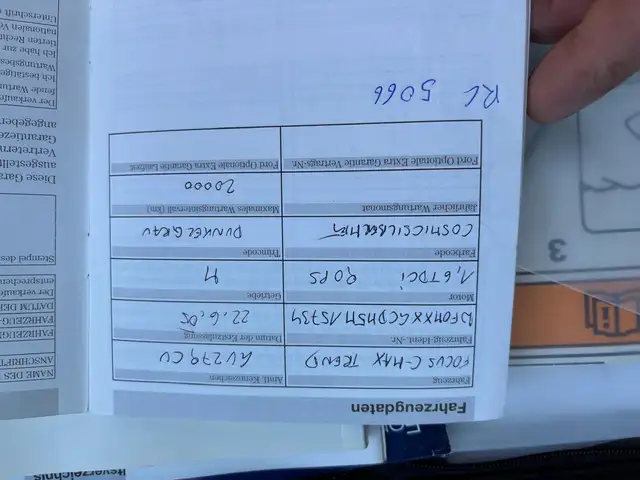 Fahrzeugdaten
Fahrzeug
Amtl. Kennzeichen
FOCUS C-MAX TREND
Fahrzeug-Ident.-Nr.
Datum der Erstzulassung
22.6.05
Motor
Getriebe
1,6 TDCi 90PS
M
Farbcode
Trimcode
COSMICSILBER MET
DUNKELGRAU
Jährlicher Wartungsmonat
Maximales Wartungsintervall (km)
20000
Ford Optionale Extra Garantie Vertrags-Nr.
Ford Optionale Extra Garantie Laufzeit
RC 5066
Diese Gara
ausgestellt
Vertretern
Garantiezei
angegeben
Der verkaufe
fende Wartung
Ich bestätige
Wartungsbes
Ich habe zur
tierten Recht
nationalen Ve
Unterschrift d
Stempel des
Der verkaufe
entsprechen
DATUM DER
FAHRZEUG-
FAHRZEUGI
ANSCHRIFT
NAME DES
tsverzeichnis
3